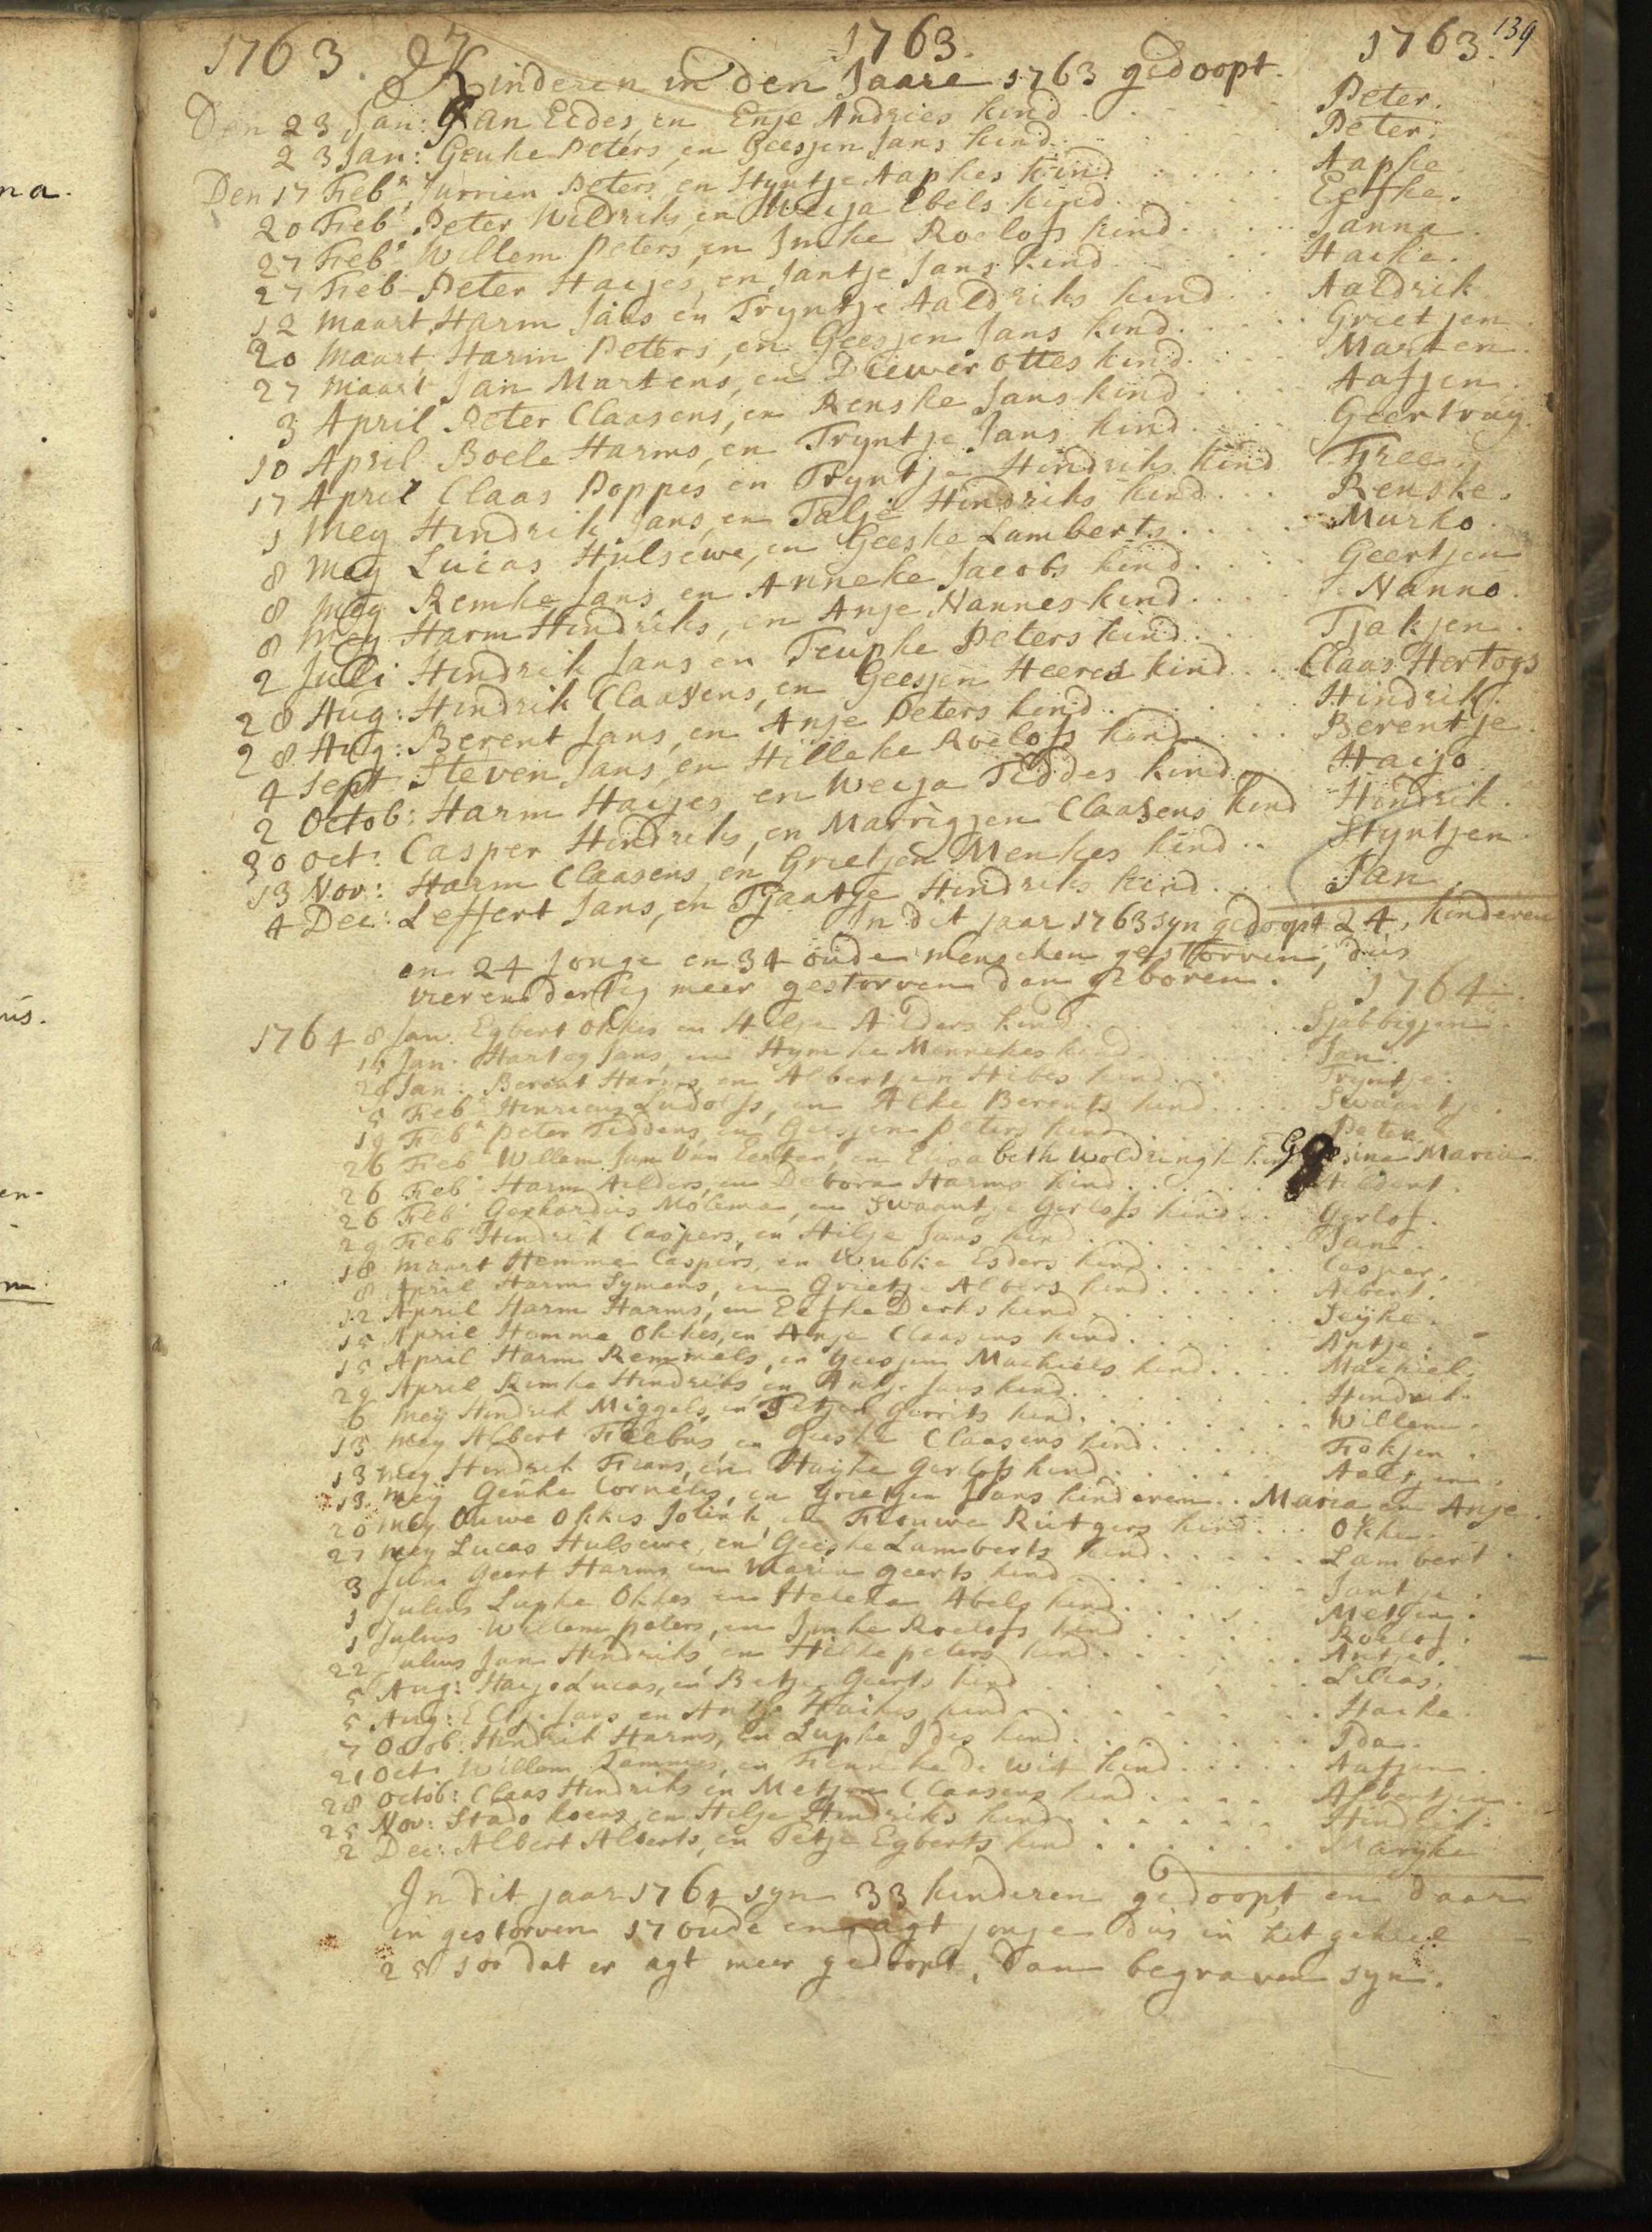 139
1763. 1763. 1763.
Kinderen in den Jaare 1763 gedoopt.
Den 23 Jan: Jan Eedes, en Enje Andries kind . . . Peter.
23 Jan: Geuke Peters, en Geesjen Jans kind . . . Peter.
Den 17 Febr Jurrien Peters, en Styntje Aapkes kind . . . Aapke
20 Febr Peter Wildriks, en Weija Ebels kind . . . Eefke.
27 Febr Willem Peters, en Imke Roelofs kind . . . Janna.
27 Feb Peter Haijes, en Jantje Jans kind . . . Haike.
12 Maart Harm Jans en Tryntje Aaldriks kind . . . Aaldrik
20 Maart Harm Peters, en Geesjen Jans kind . . . Grietjen
27 Maart Jan Martens, en Diewer Ottes kind . . . Marten
3 April Peter Claasens, en Renske Jans kind . . . Aafjen.
10 April Boele Harms, en Tryntje Jans kind . . . Geertruy
17 April Claas Poppes en Tryntje Hindriks kind Free.
1 Mey Hindrik Jans, en Talje Hindriks kind . . . Renske.
8 Mey Lucas Hulsewe, en Geeske Lamberts . . . Murko
8 Mey Remke Jans en Anneke Jacobs kind . . . Geertjen
8 Mey Harm Hindriks, en Anje Nannes kind . . . Nanno.
2 Julli Hindrik Jans en Teupke Peters kind . . . Tjakjen.
28 Aug: Hindrik Claasens, en Geesjen Heeres kind . . Claas Hertogs
28 Aug: Berent Jans, en Anje Peters kind . . . Hindrik.
4 Sept Steven Jans, en Hilleke Roelofs kind . . . Berentje.
2 Octob: Harm Haijes, en Weija Feddes kind . . . Haijo
30 Oct: Casper Hindriks, en Marrigjen Claasens kind Hindrik.
13 Nov: Harm Claasens, en Grietjen Menkes kind . . Styntjen.
4 Dec: Leffert Jans, en Tjaatje Hindriks kind . . . Jan
In dit jaar 1763 syn gedoopt 24, kinderen
en 24 Jonge en 34 oude menschen gestorven, dus
vier en dertig meer gestorven dan geboren.
1764.
1764 8 Jan. Egbert Okkes en Hilje Alders kind . . . Sjabbigjen
15 Jan. Harteg Jans, en Hymke Mennekes kind . . . Jan.
29 Jan: Berent Harms, en Albertjen Hibes kind . . . Tryntje.
5 Febr Henricus Ludolfs, en Alke Berents kind . . . Swaantje.
19 Febr Peter Feddens, en Geesjen Peters kind . . . Peter
26 Feb Willem Jan Van Eerten, en Elisabeth Woldringh kind Gesina Maria.
26 Feb Harm Alders, en Debora Harms kind . . . Aldert.
26 Feb Gerhardus Molema, en Swaantje Gerlofs kind . . Gerlof.
29 Feb Hindrik Caspers, en Hilje Jans kind . . . Jan.
18 Maart Hemme Caspers, en Wubke Esders kind . . . Casper.
8 April Harm Symens, en Grietje Albers kind . . . Albert.
12 April Harm Harms, en Eefke Derks kind . . . Seyke.
15 April Hemme Okkes, en Anje Claasens kind . . . Antje.
15 April Harm Remmels, en Geesjen Machiels kind . . . Machiel.
29 April Remke Hindriks, en Antje Jans kind . . . Hindrik.
6 Mey Hindrik Miggels, en Fetjen Gerrits kind . . . Willem.
13 Mey Albert Feebus, en Geeske Claasens kind . . . Fokjen.
13 Mey Hindrik Frans, en Hayke Gerlofs kind . . . Aaltjen.
13 Mey Geuke Cornelis, en Grietjen Jans kinderen . . Maria en Anje.
20 Mey Ouwe Okkes Jolink, en Frouwe Rutgers kind . . . Okke.
27 Mey Lucas Hulsewe, en Geeske Lamberts kind . . . Lambert.
3 Juni Geert Harms en Maria Geerts kind . . . Jantje.
1 Julius Lupke Okkes en Helena Abels kind . . . Metjen.
1 Julius Willem Peters, en Imke Roelofs kind . . . Roelof.
22 Julius Jan Hindriks, en Hilke Peters kind . . . Antje.
5 Aug: Hayo Lucas, en Betje Geerts kind . . . Lucas.
5 Aug: Eltje Jans en Antje Haikes kind . . . Haike.
7 Octob: Hindrik Harms, en Lupke Ides kind . . . Ida.
21 Oct. Willem Tammes, en Fenneke de Wit kind . . . Aatjen.
28 Octob: Claas Hindriks en Metjen Claasens kind . . . Albertjen.
25 Nov: Stado Koens, en Hilje Hindriks kind . . . Hindrik.
2 Dec: Albert Alberts, en Fetje Egberts kind . . . Maryke
In dit jaar 1764 syn 33 kinderen gedoopt, en daar
en gestorven 17 oude en agt jonge dus in het geheel
25 soo dat er agt meer gedoopt, dan begraven syn.